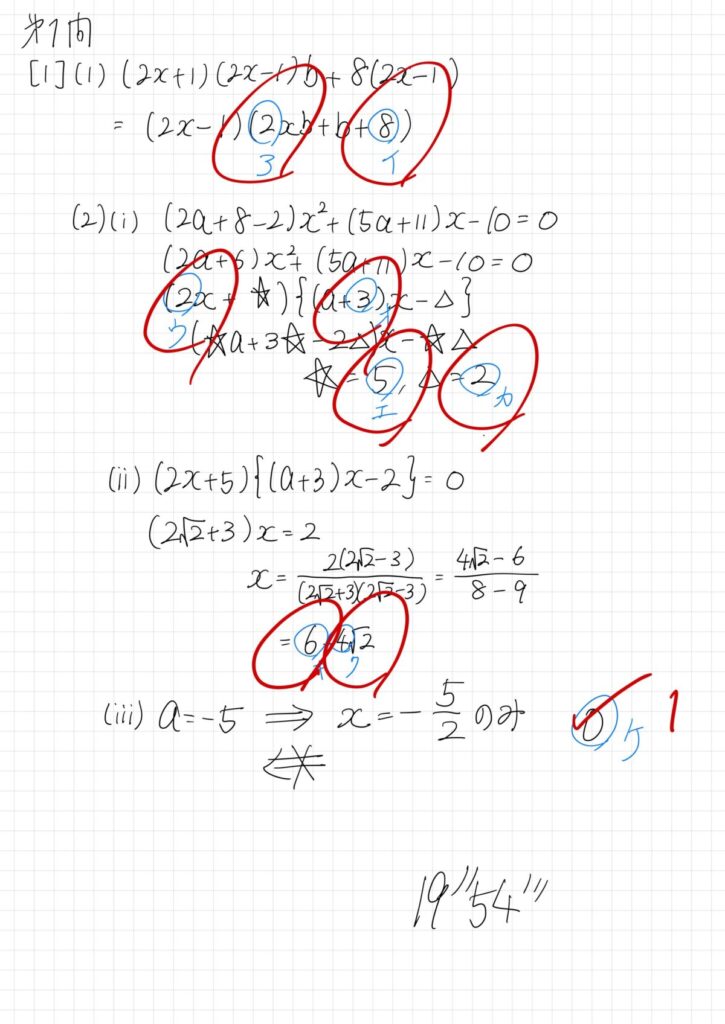 第1問
[1](1) (2x+1)(2x-1)b+8(2x-1)
= (2x-1)(2xb+b+8)
ア イ
(2)(i) (2a+8-2)x²+(5a+11)x-10=0
(2a+6)x²+(5a+11)x-10=0
(2x+☆){(a+3)x-△}
ウ オ
(☆a+3☆-2△)x-☆△
☆=5, △=2
エ カ
(ii) (2x+5){(a+3)x-2}=0
(2√2+3)x=2
x = 2(2√2-3)/(2√2+3)(2√2-3) = 4√2-6/8-9
= 6-4√2
キ ク
(iii) a=-5 ⟹ x=-5/2 のみ 0 1
ケ
19"54"'